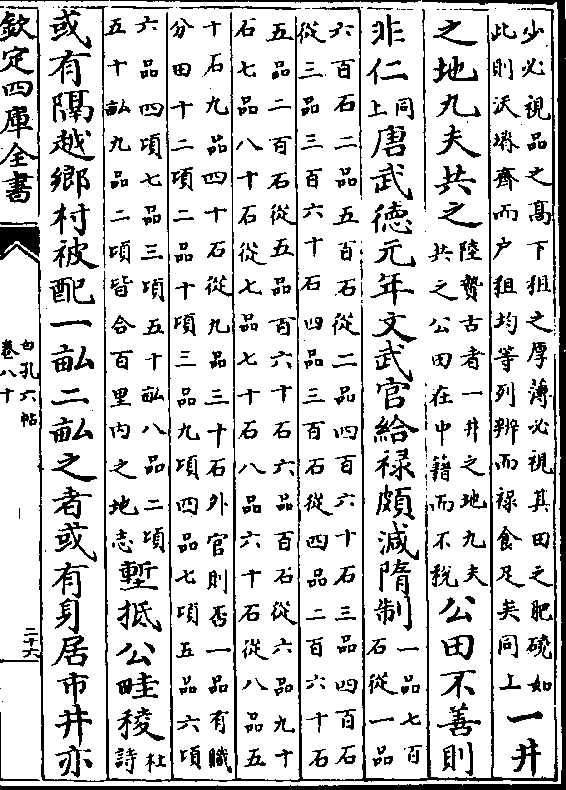 少必視品之髙下租之厚薄必視其田之肥磽如
此則沃瘠齊而户租均等列辨而禄食足矣同上
一井
之地九夫共之
陸贄古者一井之地九夫
共之公田在中籍而不稅
公田不善則
非仁
同
上
唐武徳元年文武官給禄頗減隋制
一品七百
石從一品
六百石二品五百石從二品四百六十石三品四百石
從三品三百六十石四品三百石從四品二百六十石
五品二百石從五品百六十石六品百石從六品九十
石七品八十石從七品七十石八品六十石從八品五
十石九品四十石從九品三十石外官則否一品有職
分田十二頃二品十頃三品九頃四品七頃五品六頃
六品四頃七品三頃五十畝八品二頃
五十畝九品二頃皆合百里内之地志
壍抵公畦稜
杜
詩
或有隔越鄉村被配一畝二畝之者或有身居市井亦
欽定四庫全書
白孔六帖
卷八十
二十六